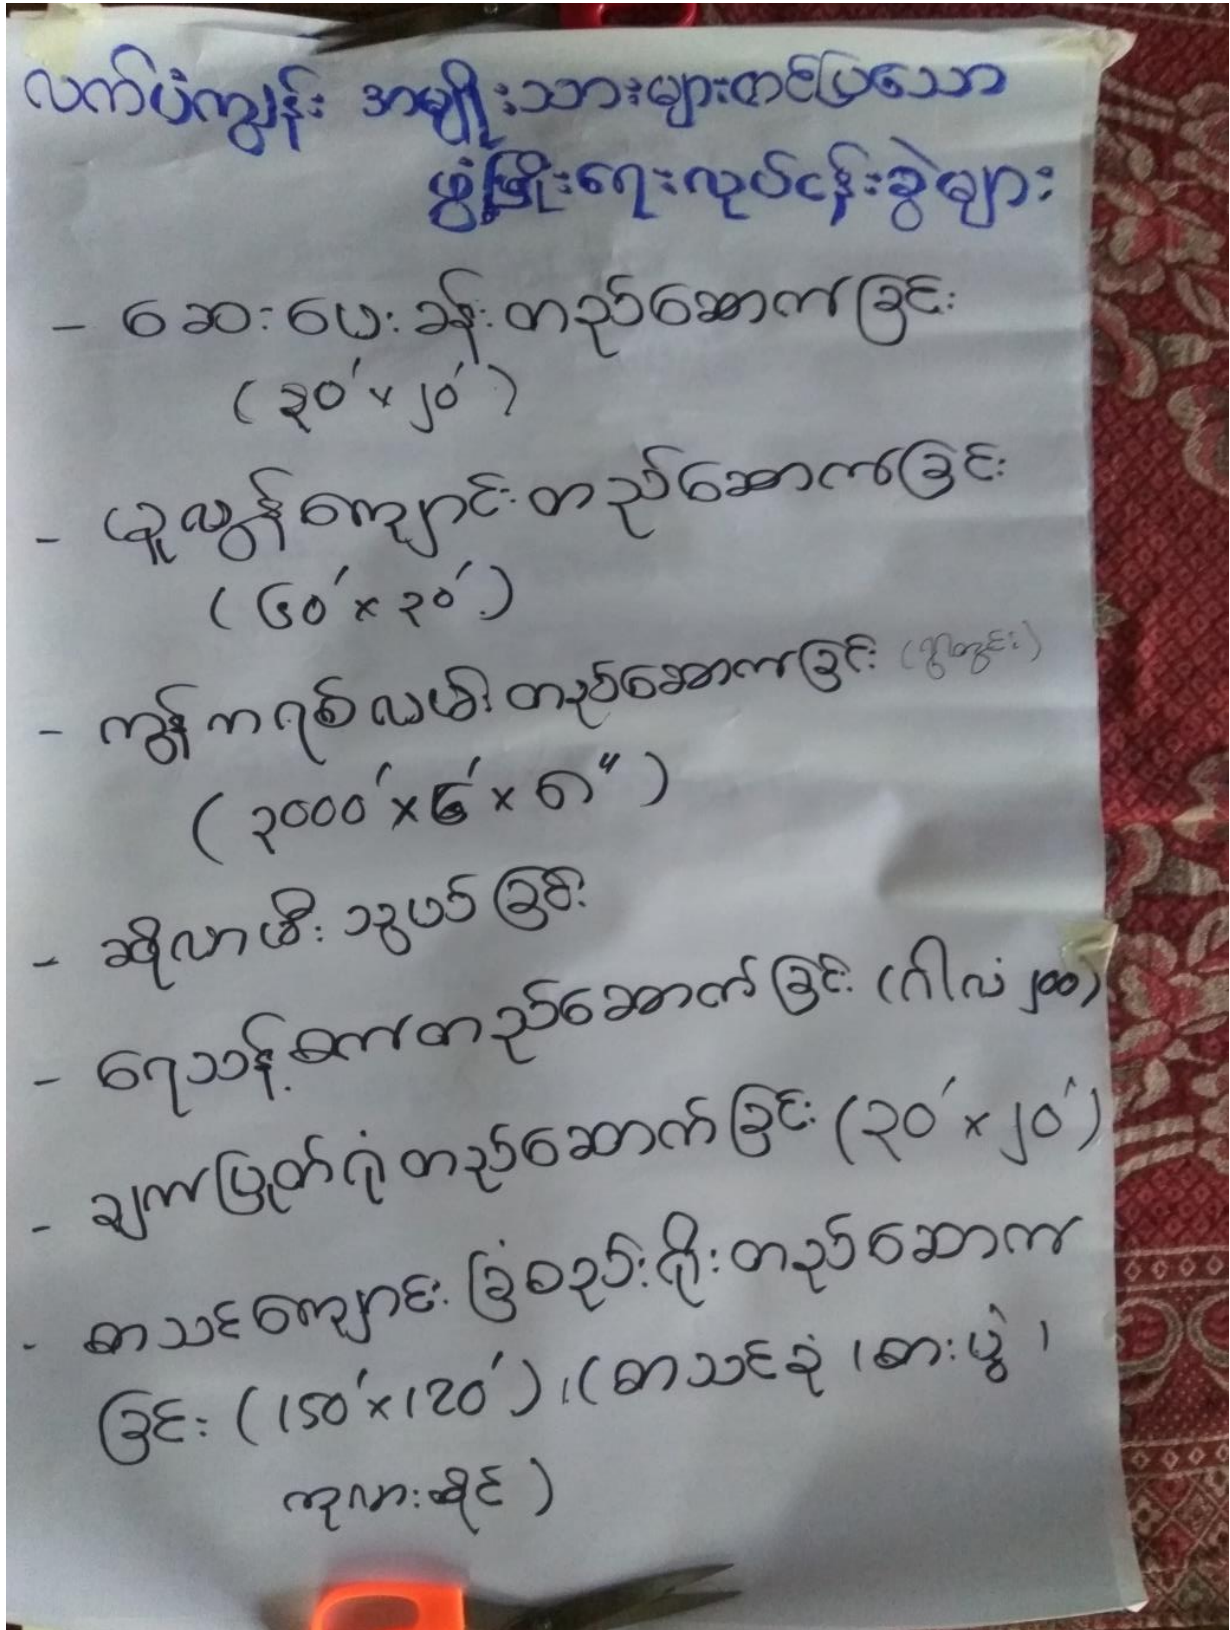 လက်ပံကျွန်း အမျိုးသားများတင်ပြသော
ဖွံ့ဖြိုးရေးလုပ်ငန်းခွဲများ
- ဆေးပေးခန်းတည်ဆောက်ခြင်း
(၃၀' x ၂၀')
- မူလွန်ကျောင်းတည်ဆောက်ခြင်း
(၆၀' x ၃၀')
- ကွန်ကရစ်လမ်းတည်ဆောက်ခြင်း (ရွာတွင်း)
(၃၀၀၀' x ၆' x ၆")
- ဆိုလာမီးသွယ်ခြင်း
- ရေသန့်စက်တည်ဆောက်ခြင်း (ဂါလံ ၂၀၀)
- ချက်ပြုတ်ရုံတည်ဆောက်ခြင်း (၃၀' x ၂၀')
- စာသင်ကျောင်း ခြံစည်းရိုးတည်ဆောက်
ခြင်း (150' x 120')၊ (စာသင်ခုံ၊ စားပွဲ၊
ကုလားထိုင်)